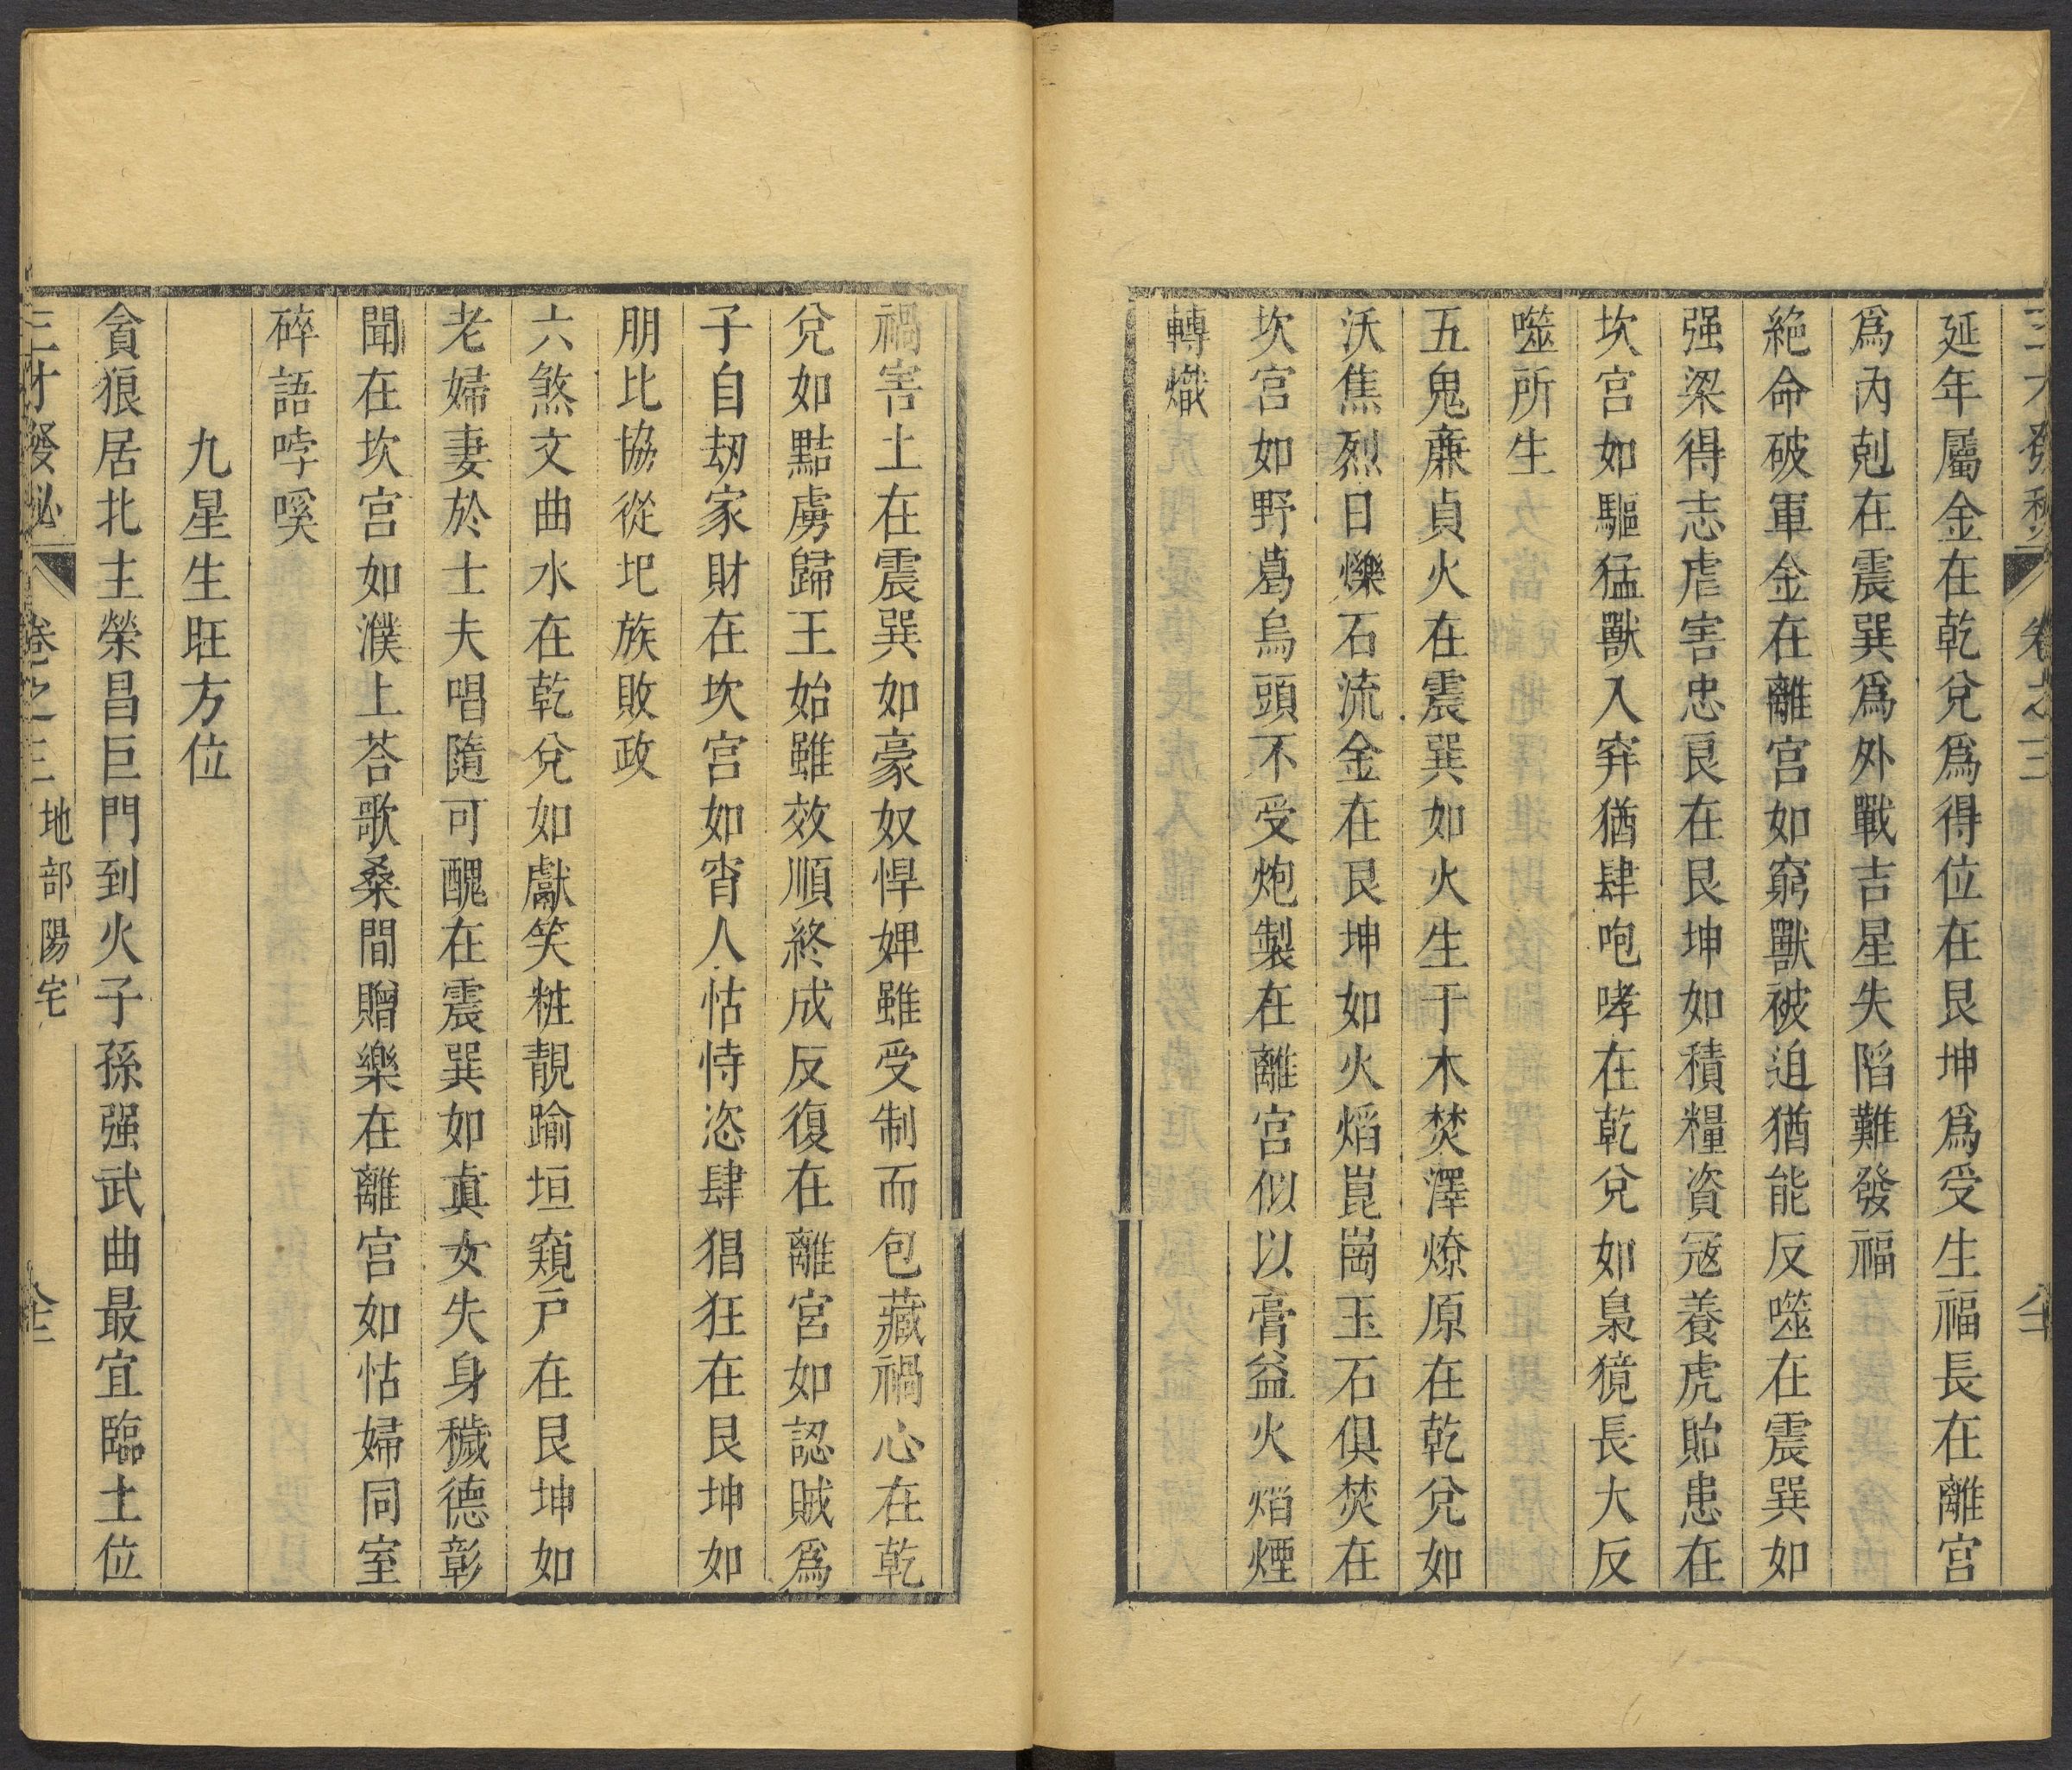 三才發秘 卷之三
延年屬金在乾兌爲得位在艮坤爲受生福長在離宮
爲內剋在震巽爲外戰吉星失陷難發福
絶命破軍金在離宮如窮獸被迫猶能反噬在震巽如
强梁得志虐害忠良在艮坤如積糧資寇養虎貽患在
坎宮如驅猛獸入穽猶肆咆哮在乾兌如梟獍長大反
噬所生
五鬼亷貞火在震巽如火生于木焚澤燎原在乾兌如
沃焦烈日爍石流金在艮坤如火熖崑崗玉石俱焚在
坎宮如野葛烏頭不受炮製在離宮似以膏益火熖煙
轉熾
禍害土在震巽如豪奴悍婢雖受制而包藏禍心在乾
兌如黠虜歸王始雖效順終成反復在離宮如認賊爲
子自刼家財在坎宮如宵人怙恃恣肆猖狂在艮坤如
朋比協從圯族敗政
六煞文曲水在乾兌如獻笑粧靚踰垣窺户在艮坤如
老婦妻於士夫唱隨可醜在震巽如眞女失身穢德彰
聞在坎宮如濮上荅歌桑間贈樂在離宮如怙婦同室
碎語哼嗘
九星生旺方位
貪狼居北主榮昌巨門到火子孫强武曲最宜臨土位
三才發秘 卷之三 地部陽宅